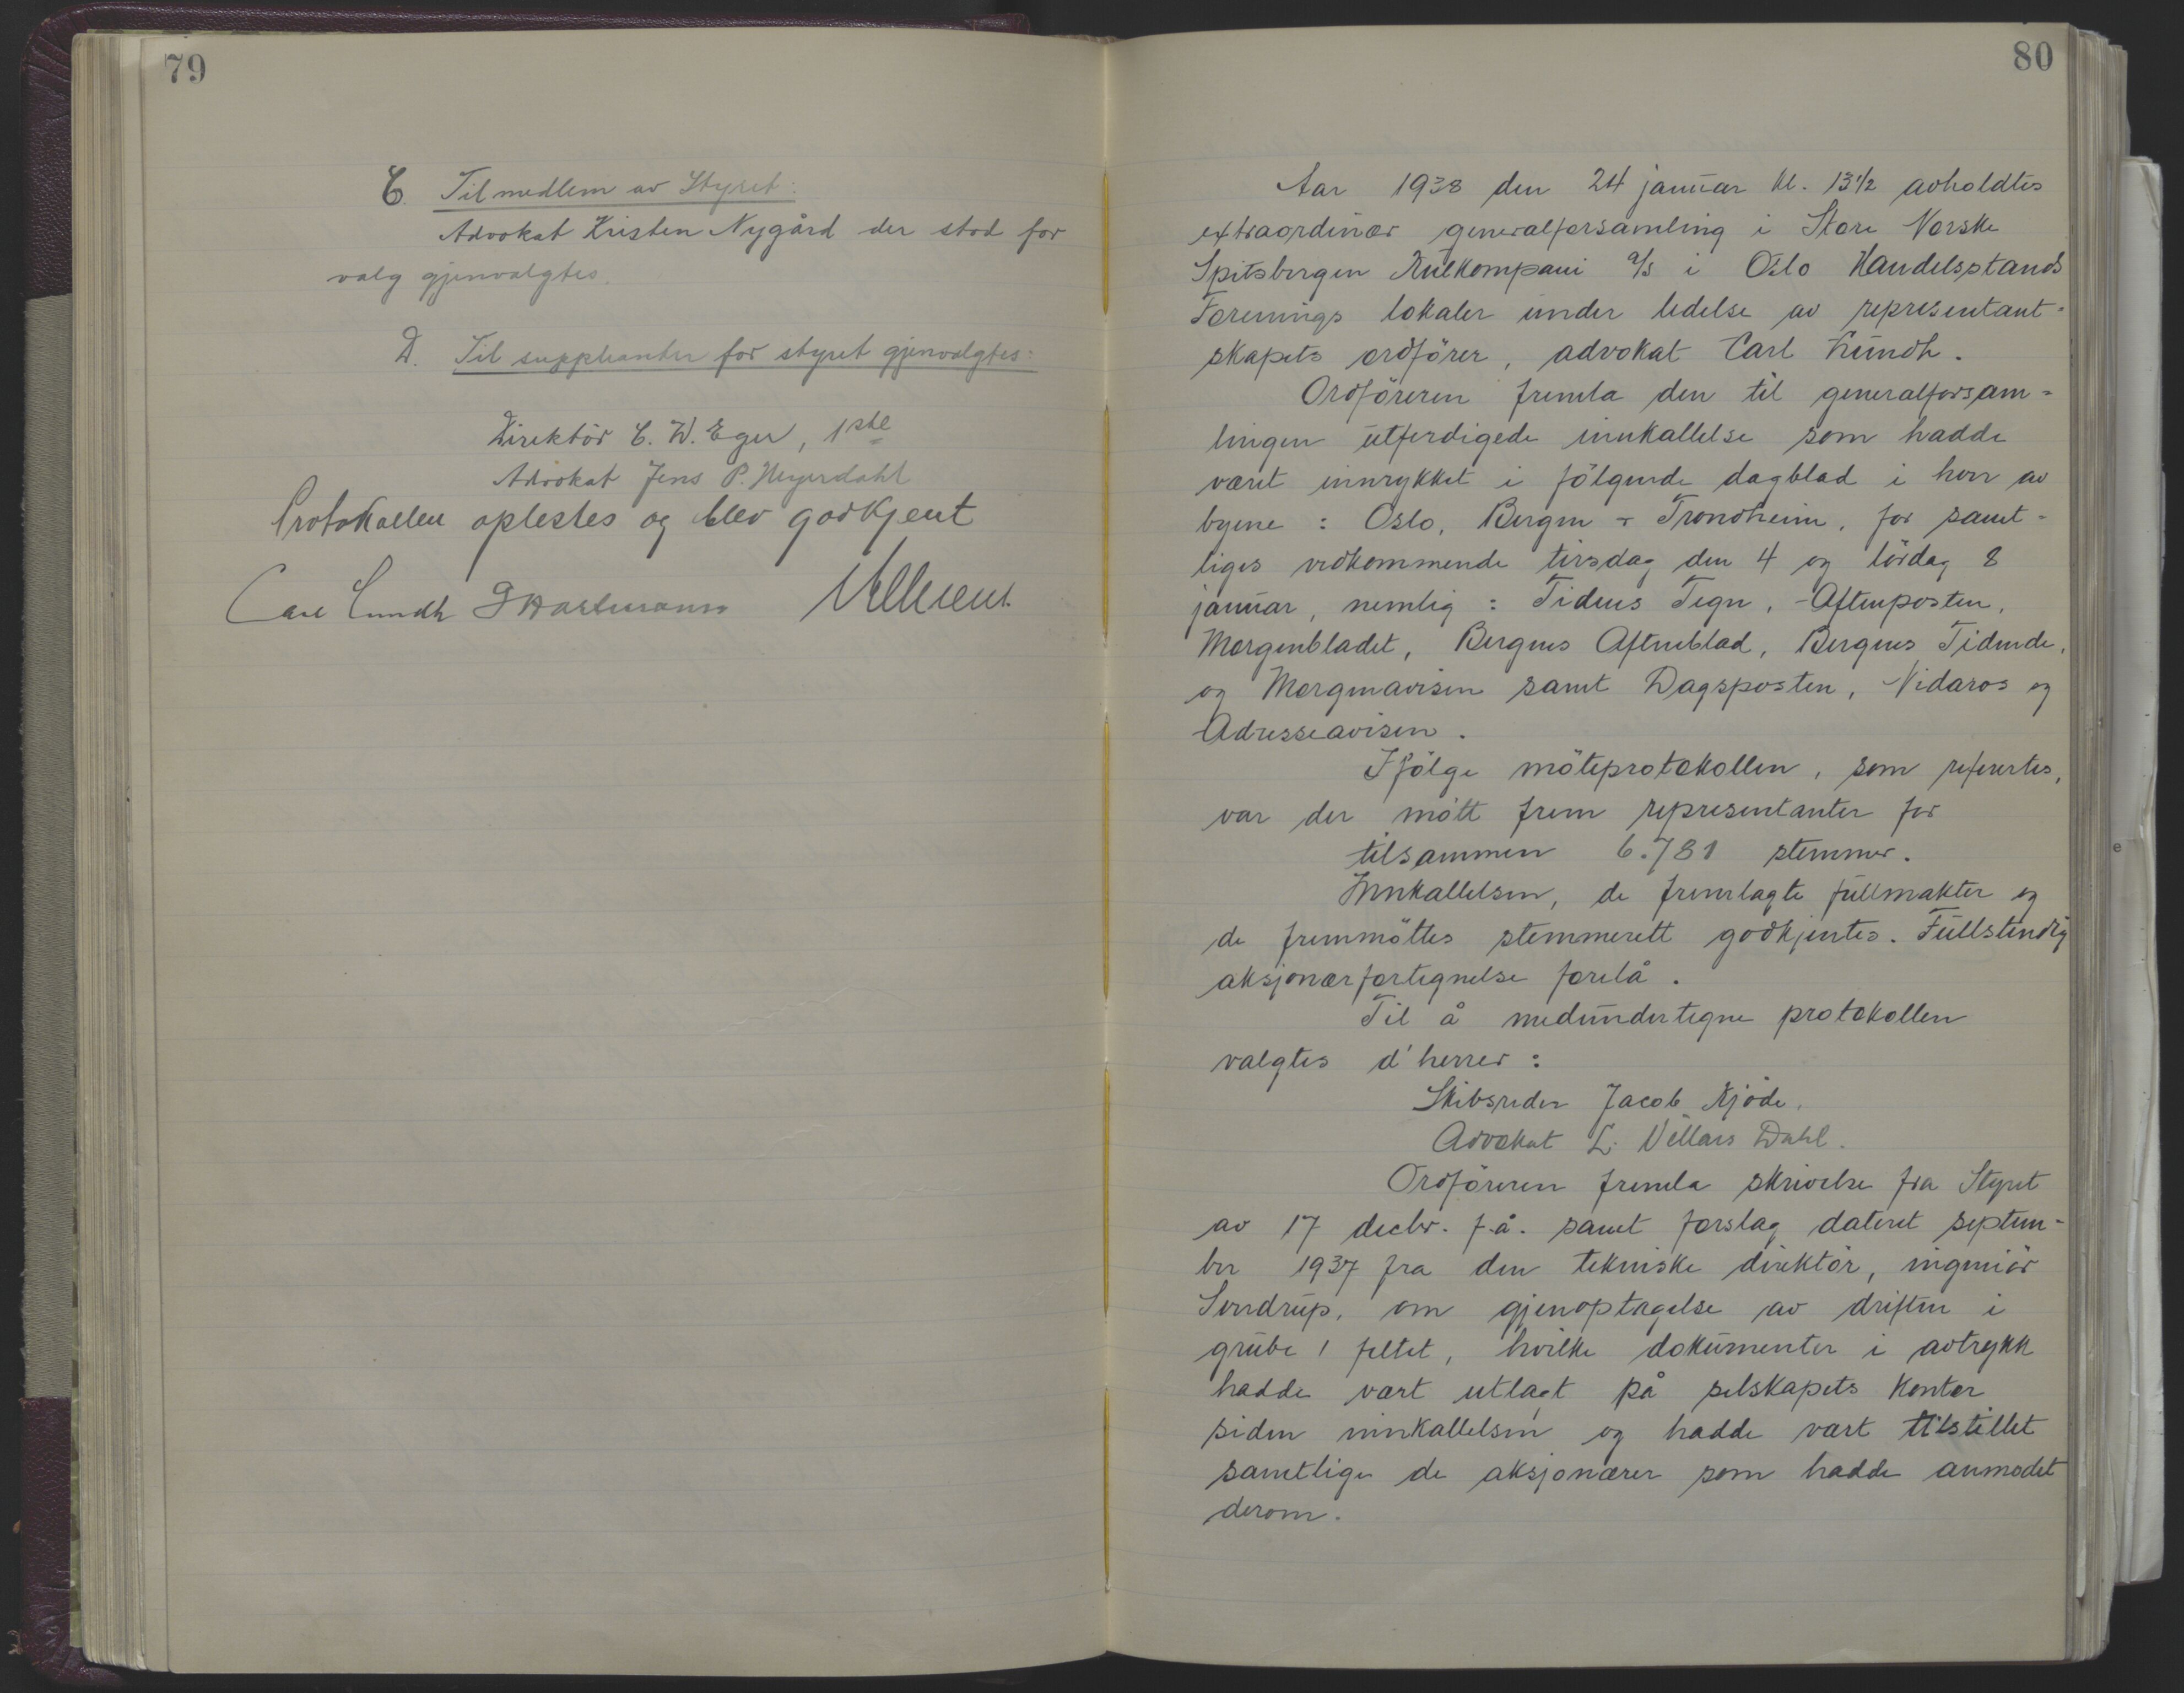 79
C. Til medlem av Styret:
Advokat Kristen Nygård der stod for
valg gjenvalgtes.
D. Til suppleanter for styret gjenvalgtes:
Direktör C. W. Eger, 1ste
Advokat Jens P. Heyerdahl
Protokollen oplestes og blev godkjent
Carl Lundh
80
Aar 1938 den 24 januar kl. 13½ avholdtes
extraordinær generalforsamling i Store Norske
Spitsbergen Kulkompani a/s i Oslo Handelsstands
Forenings lokaler under ledelse av representant-
skapets ordförer, advokat Carl Lundh.
Ordföreren fremla den til generalforsam-
lingen utferdigede innkallelse som hadde
været innrykket i fölgende dagblad i hver av
byene: Oslo, Bergen + Trondheim, for samt-
liges vedkommende tirsdag den 4 og lördag 8
januar, nemlig: Tidens Tegn, Aftenposten,
Morgenbladet, Bergens Aftenblad, Bergens Tidende,
og Morgenavisen samt Dagsposten, Nidaros og
Adresseavisen.
Ifölge möteprotokollen, som refertes,
var der mött frem representanter for
tilsammen 6.781 stemmer.
Innkallelsen, de fremlagte fullmakter og
de fremmöttes stemmerett godkjentes. Fullstendig
aksjonærfortegnelse forelå.
Til å medundertegne protokollen
valgtes d'herrer:
Skibsreder Jacob Kjöde.
Advokat L. Villars Dahl.
Ordföreren fremla skrivelse fra Styret
av 17 decbr. f.å. samt forslag dateret septem-
ber 1937 fra den tekniske direktör, ingeniör
Sverdrup, om gjenoptagelse av driften i
grube 1 feltet, hvilke dokumenter i avtrykk
hadde vært utlagt på selskapets kontor
siden innkallelsen og hadde vært tilstillet
samtlige de aksjonærer som hadde anmodet
derom.